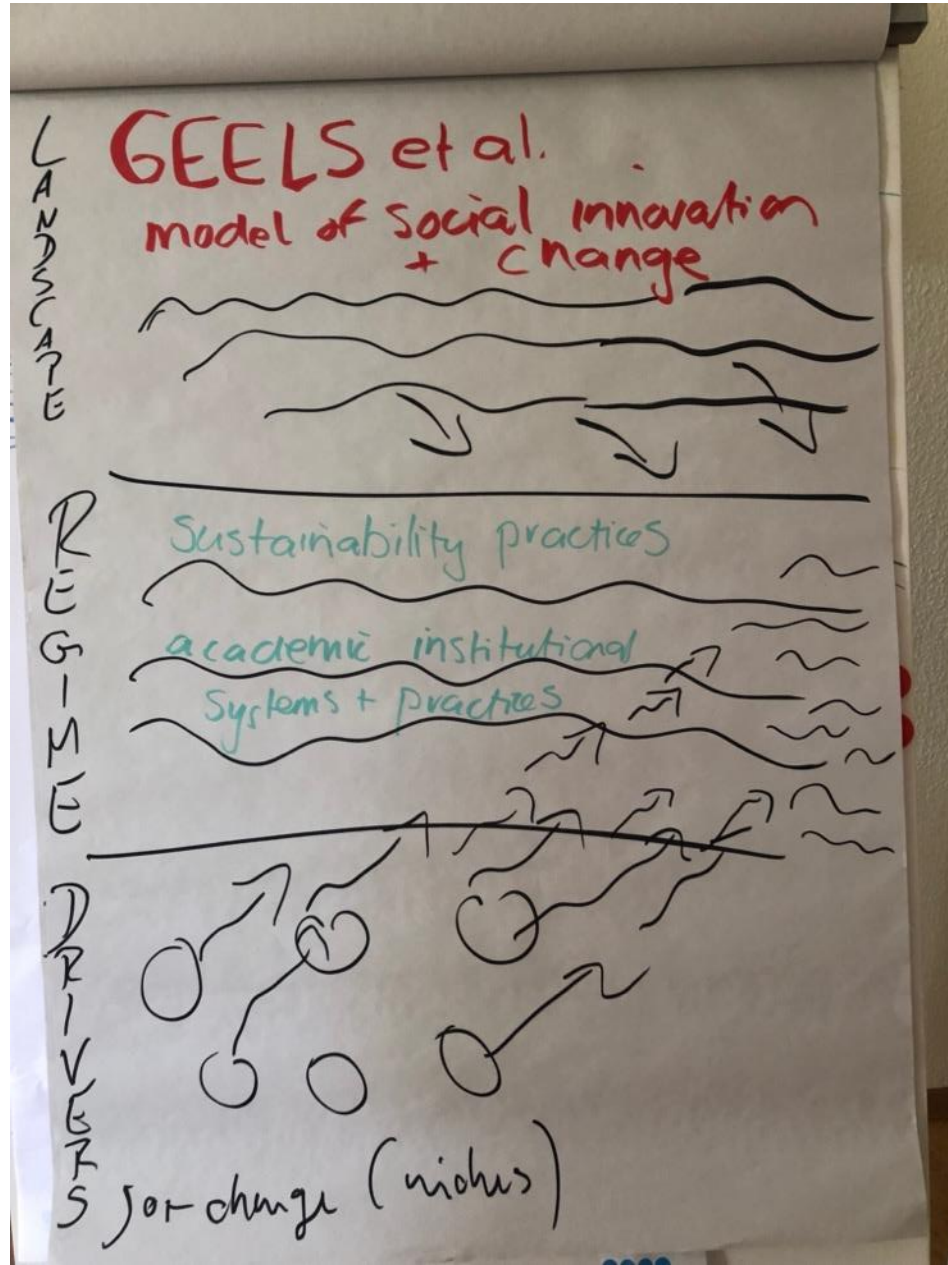 LANDSCAPE
GEELS et al.
model of social innovation
+ change
REGIME
Sustainability practices
academic institutional
Systems + practices
DRIVERS
for change (niches)